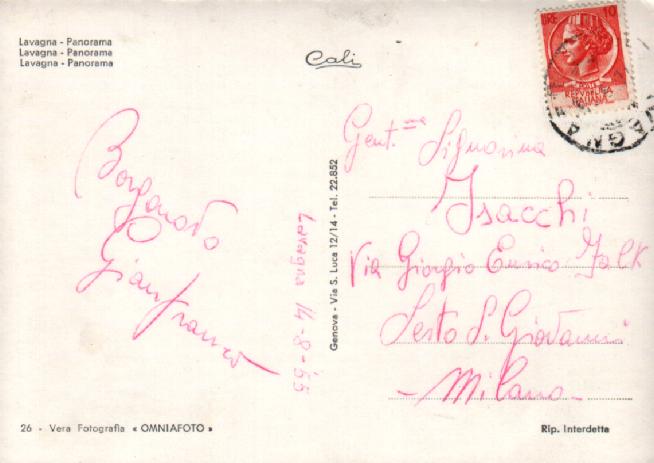 Lavagna - Panorama
Lavagna - Panorama
Lavagna - Panorama
Cali
LIRE 10
Borgonovo
Gianfranco
Lavagna 14-8-55
Genova - Via S. Luca 12/14 - Tel. 22.852
Gent.ma Signorina
Isacchi
Via Giorgio Enrico Falk
Sesto S. Giovanni
- Milano -
26 - Vera Fotografia « OMNIAFOTO »
Rip. Interdetta